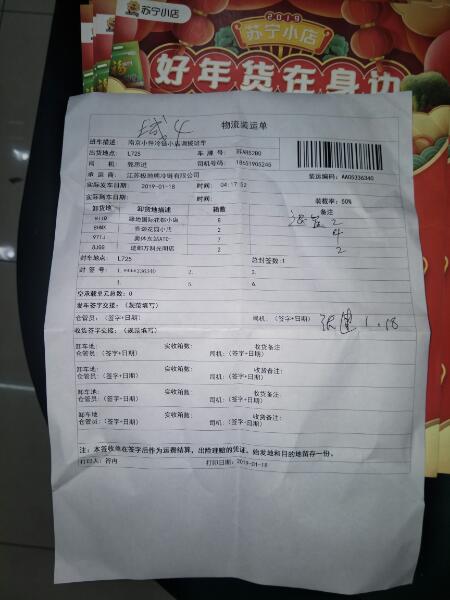 苏宁小店
2019
苏宁小店
好年货在身边
域4
物流装运单
班车描述: 南京小件冷链小店调拨班车
出货地点: L725 车牌号:
司 机: 司机号码: 18651905246
承运商: 江苏极地熊冷链有限公司 装运编码: AA05336340
实际发车日期: 2019-01-18 时间: 04:17:52
实际到车日期: 时间: 装载率: 50%
卸货地 卸货地描述 箱数 备注
绿地国际花都小店 8
香颂花园小店 2 2
97TJ 奥体东站ATC 7 4
AJGG 建邺万科光明店 2 2
封车地点: L725 总封签数: 1
封 签 号: 1. 2. 3.
4. 5. 6.
空承载单元总数: 0
发车签字交接: (规范填写)
仓管员: (签字+日期) 司机: (签字+日期) 1.18
收货签字交接: (规范填写)
卸车地: 实收箱数: 收货备注:
仓管员: (签字+日期) 司机: (签字+日期)
卸车地: 实收箱数: 收货备注:
仓管员: (签字+日期) 司机: (签字+日期)
卸车地: 实收箱数: 收货备注:
仓管员: (签字+日期) 司机: (签字+日期)
卸车地 实收箱数: 收货备注:
仓管员: (签字+日期) 司机: (签字+日期)
注: 本签收单在签字后作为运费结算, 出险理赔的凭证, 始发地和目的地留存一份。
打印人: 打印日期: 2019-01-18